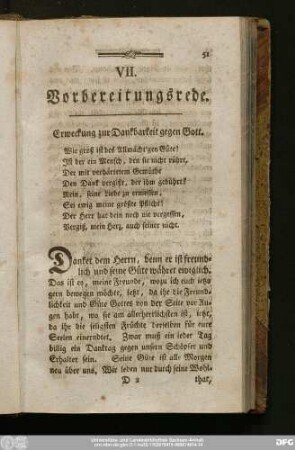 51
VII.
Vorbereitungsrede.
Erweckung zur Dankbarkeit gegen Gott.
Wie groß ist des Allmächt'gen Güte!
Ist der ein Mensch, den sie nicht rühret,
Der mit verhärtetem Gemüthe
Den Dank vergißt, der ihm gebührt?
Nein, seine Liebe zu ermessen,
Sei ewig meine größte Pflicht!
Der Herr hat dein noch nie vergessen,
Vergiß, mein Herz, auch seiner nicht.
Danket dem Herrn, denn er ist freund-
lich und seine Güte währet ewiglich.
Das ist es, meine Freunde, wozu ich euch jetzt
gern bewegen möchte, jetzt, da ihr die Freund-
lichkeit und Güte Gottes von der Seite vor Au-
gen habt, wo sie am allerherrlichsten ist, jetzt,
da ihr die seligsten Früchte derselben für eure
Seelen einerndtet. Zwar muß ein jeder Tag
billig ein Danktag gegen unsern Schöpfer und
Erhalter sein. Seine Güte ist alle Morgen
neu über uns, Wir leben nur durch seine Wohl-
D 2 that,
Universitäts- und Landesbibliothek Sachsen-Anhalt
DFG